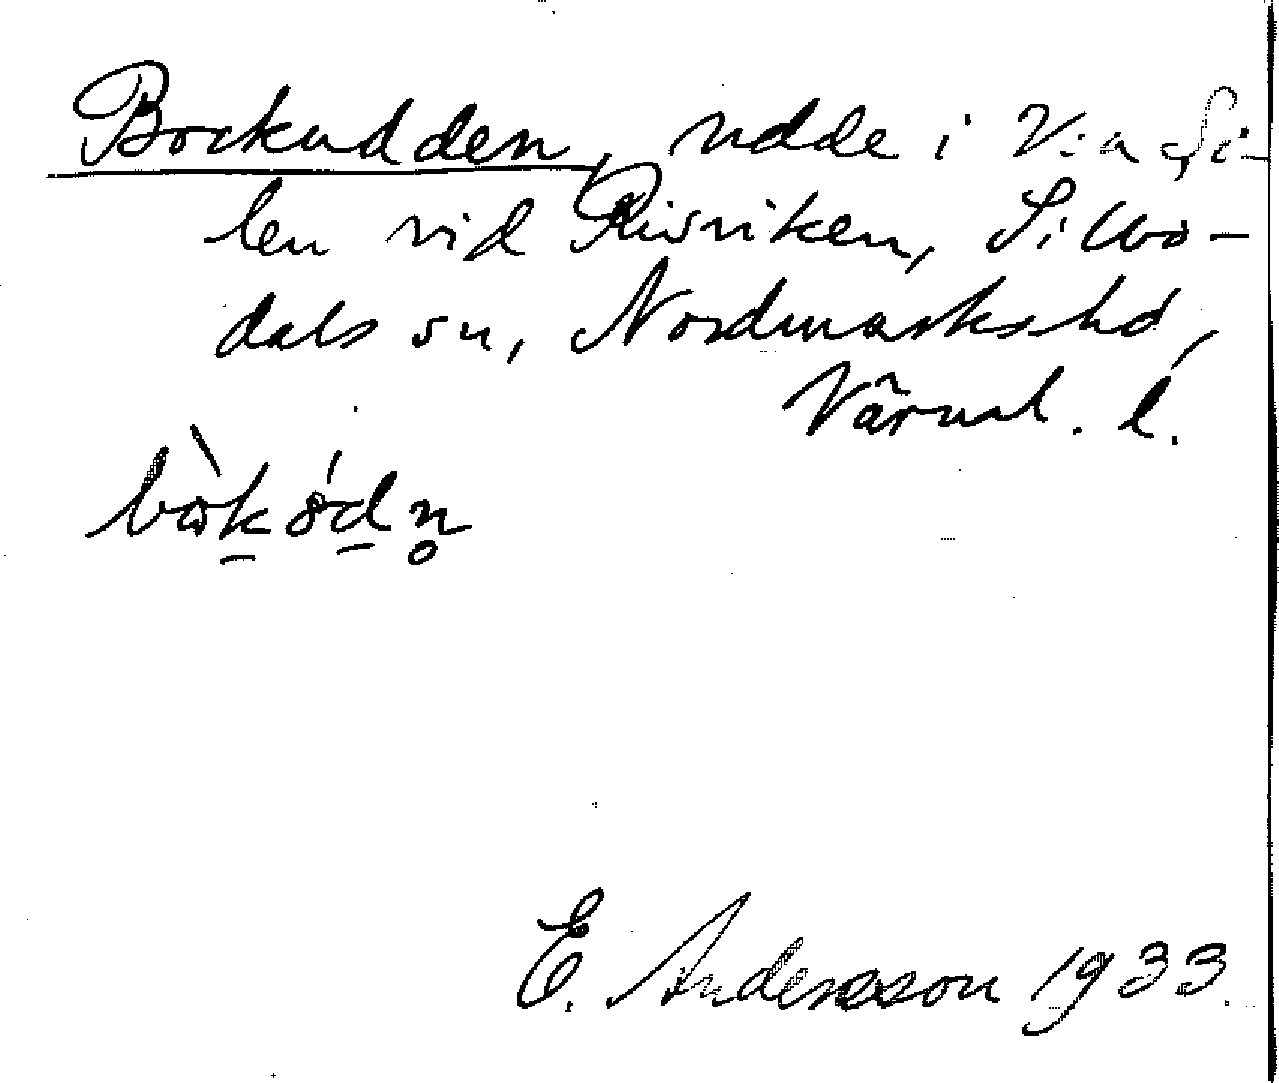 Bockudden, udde i V:a Si-
len vid Risviken, Sillbo-
dals sn, Nordmarks hd,
Värml. l.
E. Andersson 1933.